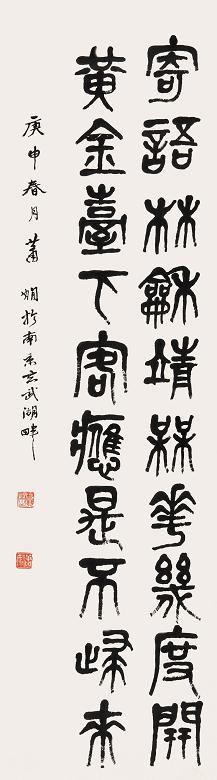 寄語林龢靖槑花幾度開
黃金臺下客應是不歸來
庚申春月蕭嫻於南京玄武湖畔